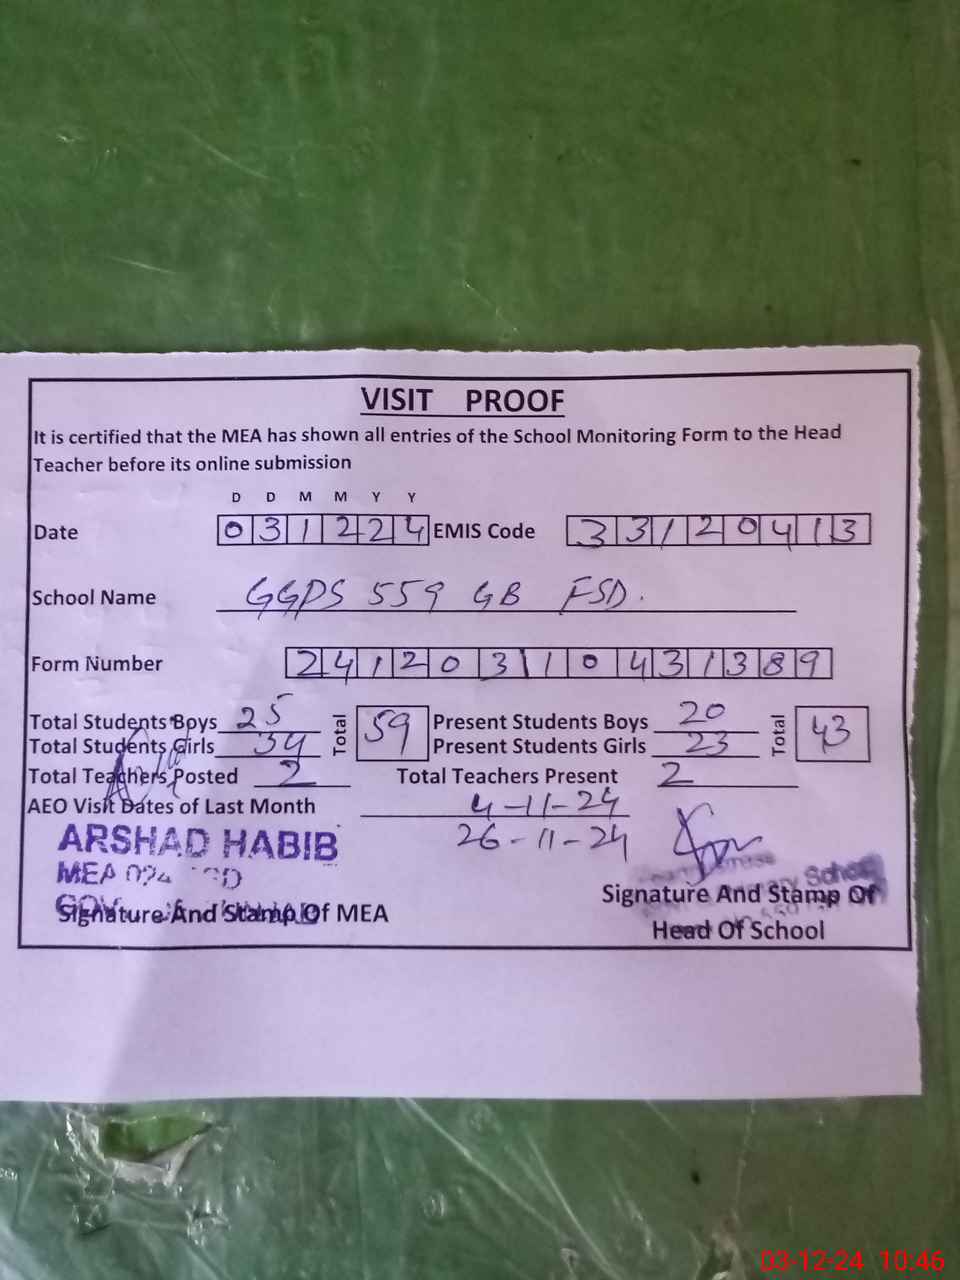 VISIT PROOF
It is certified that the MEA has shown all entries of the School Monitoring Form to the Head
Teacher before its online submission
D D M M Y Y
Date 0 3 1 2 2 4 EMIS Code 3 3 1 2 0 4 1 3
School Name GGPS 559 GB FSD.
Form Number 2 4 1 2 0 3 1 0 4 3 1 3 8 9
Total Students Boys 25 Total 59 Present Students Boys 20 Total 43
Total Students Girls 34 Present Students Girls 23
Total Teachers Posted 2 Total Teachers Present 2
AEO Visit Dates of Last Month 4-11-24
26-11-24
ARSHAD HABIB
MEA
Signature And Stamp Of MEA
Signature And Stamp Of
Head Of School
03-12-24 10:46